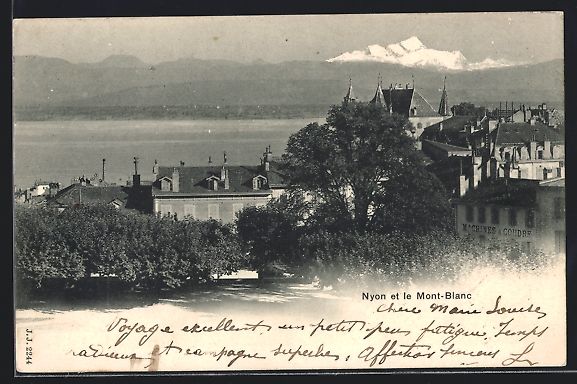 MACHINES A COUDRE
Nyon et le Mont-Blanc
Chère Marie Louise
Voyage excellent, un petit peu fatigué, temps
et campagne superbe,
J.J. 2244